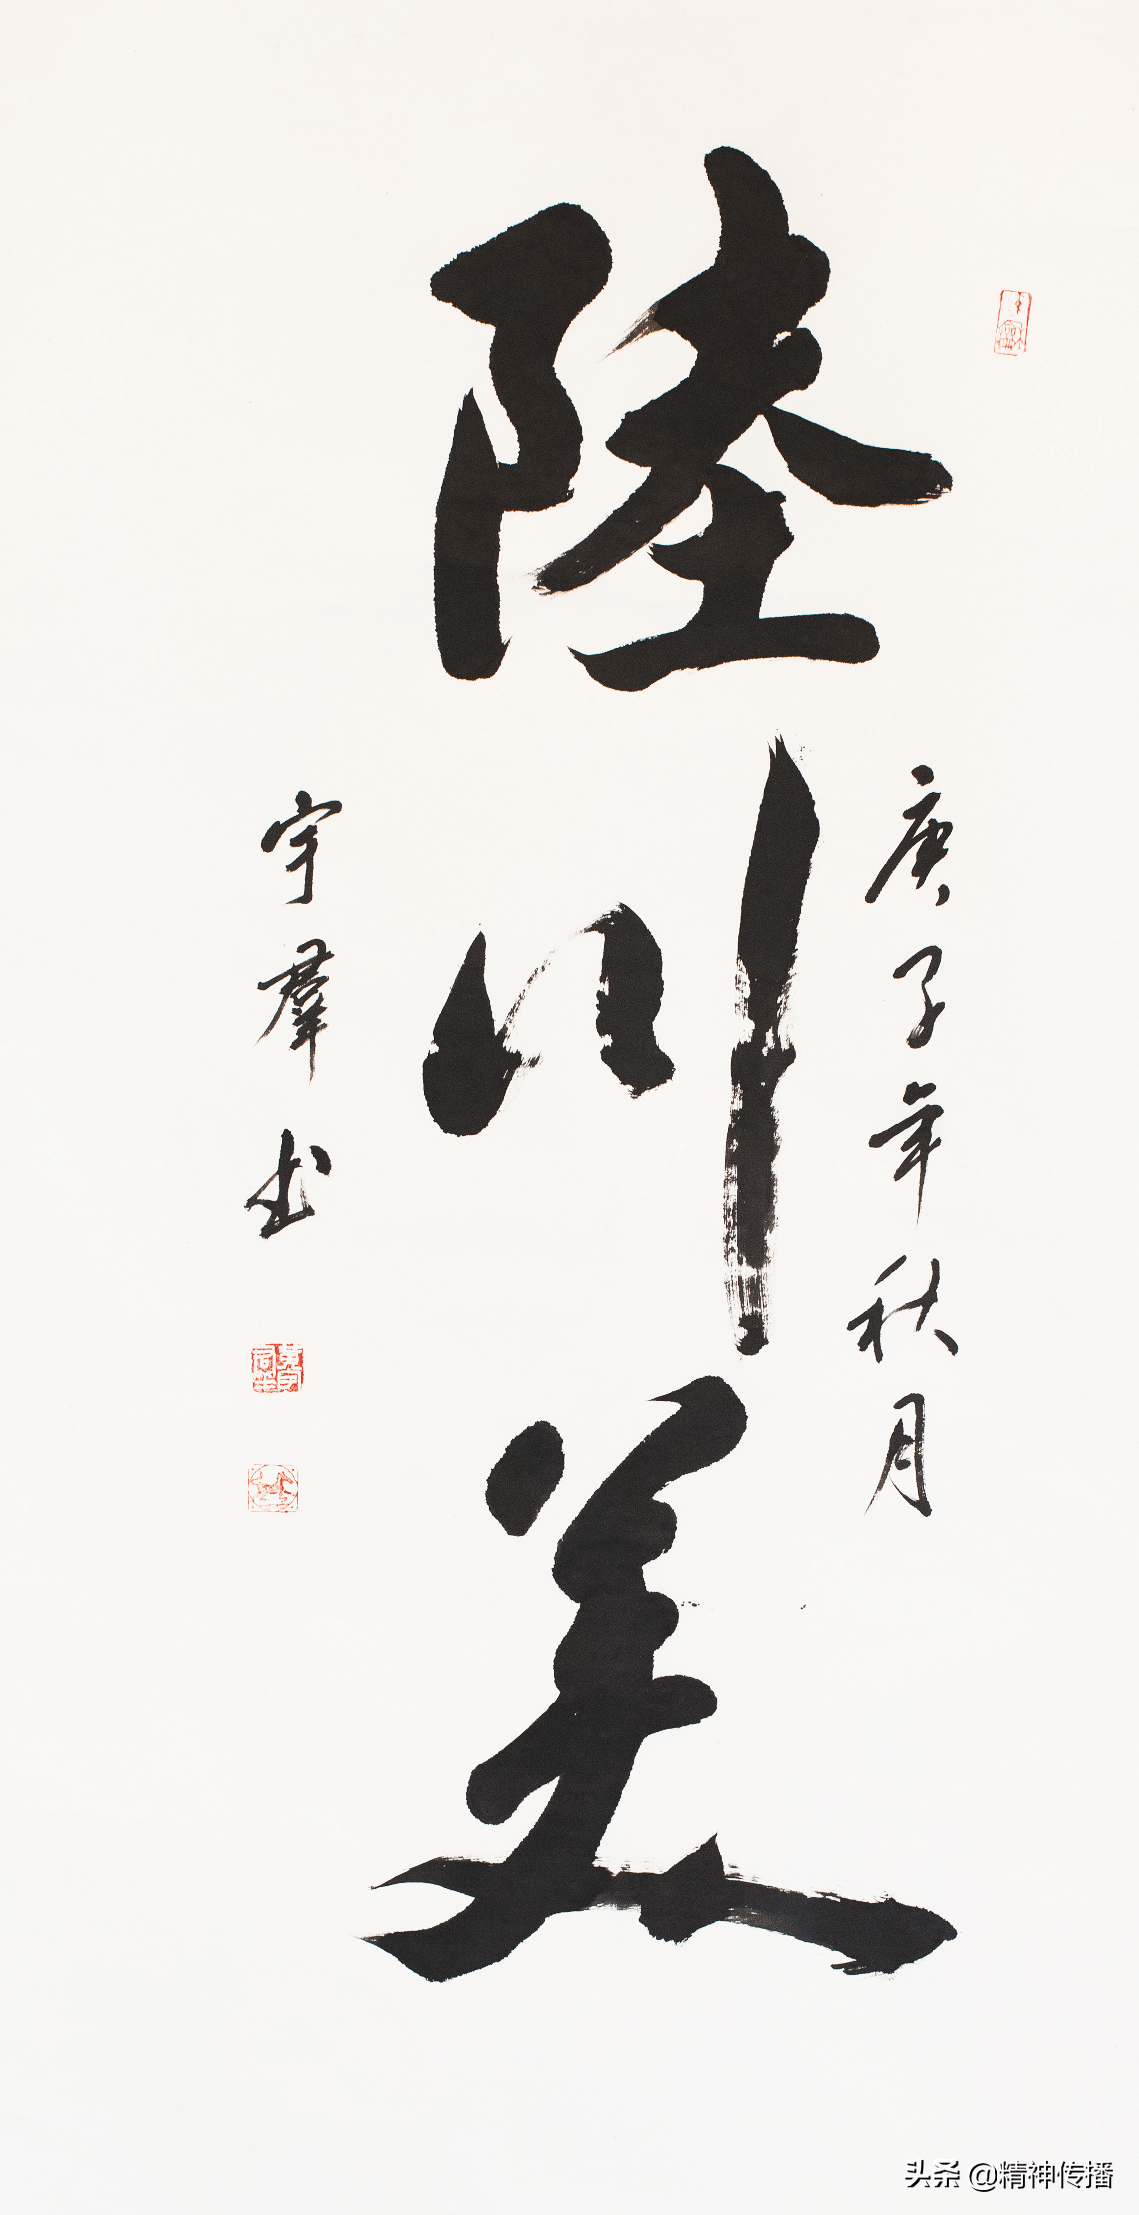 庚子年秋月
陸川美
宇羣书
头条 @精神传播